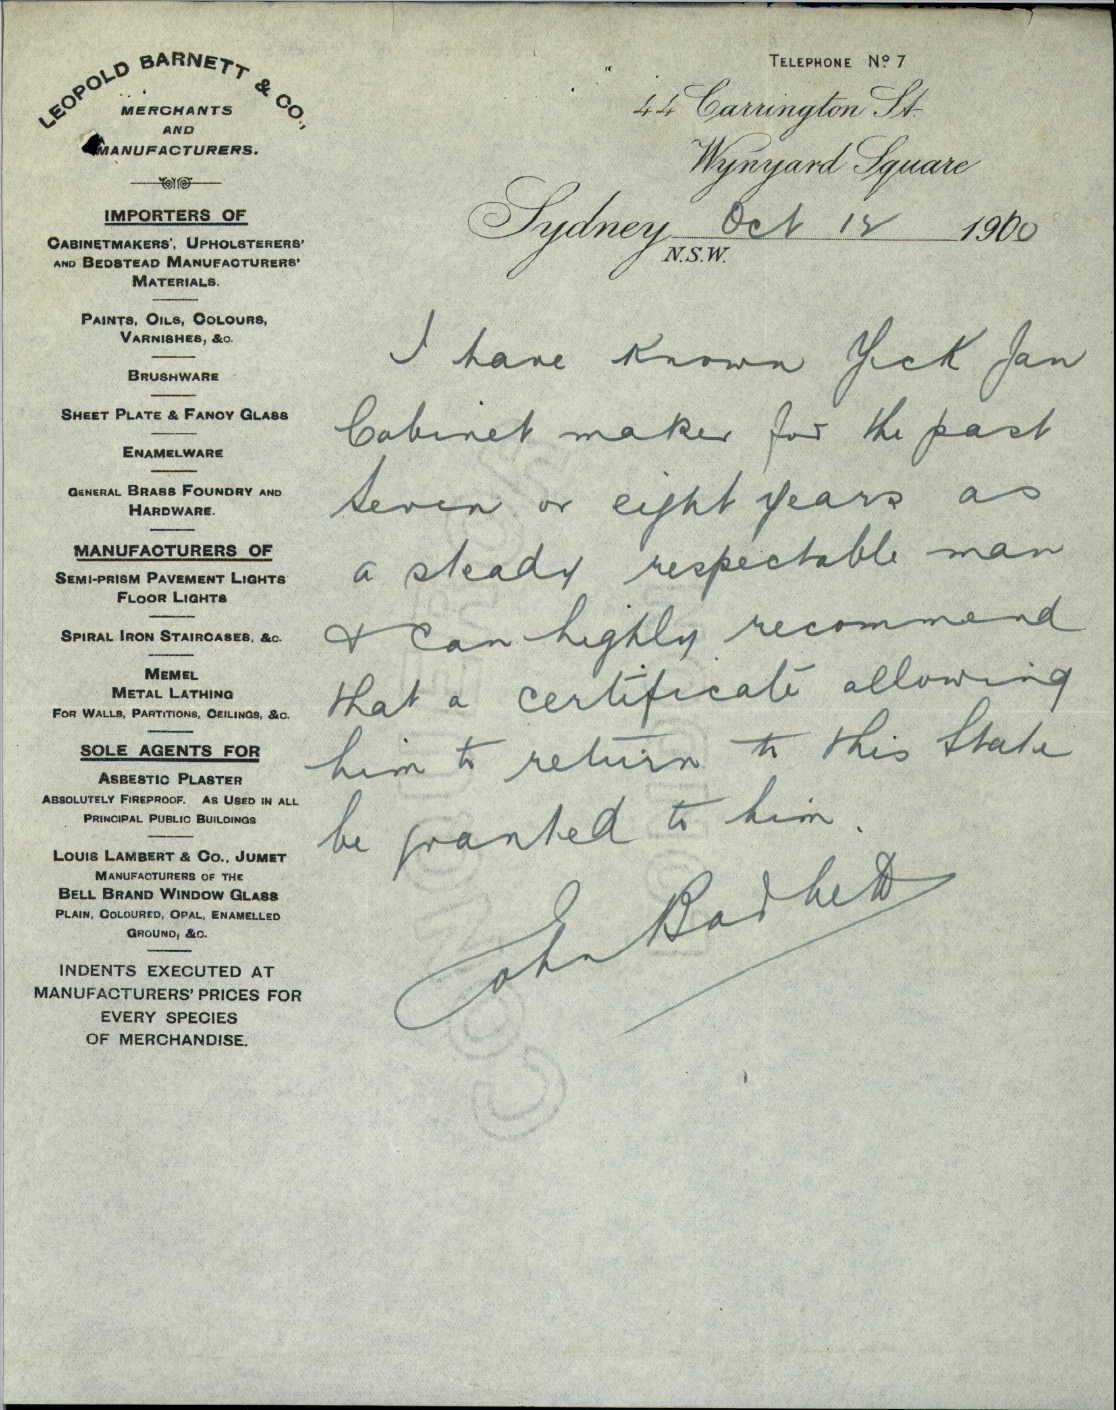 LEOPOLD BARNETT & CO.,
MERCHANTS
AND
MANUFACTURERS.
IMPORTERS OF
CABINETMAKERS', UPHOLSTERERS'
AND BEDSTEAD MANUFACTURERS'
MATERIALS.
PAINTS, OILS, COLOURS,
VARNISHES, &C.
BRUSHWARE
SHEET PLATE & FANCY GLASS
ENAMELWARE
GENERAL BRASS FOUNDRY AND
HARDWARE.
MANUFACTURERS OF
SEMI-PRISM PAVEMENT LIGHTS
FLOOR LIGHTS
SPIRAL IRON STAIRCASES, &C.
MEMEL
METAL LATHING
FOR WALLS, PARTITIONS, CEILINGS, &C.
SOLE AGENTS FOR
ASBESTIC PLASTER
ABSOLUTELY FIREPROOF. AS USED IN ALL
PRINCIPAL PUBLIC BUILDINGS
LOUIS LAMBERT & CO., JUMET
MANUFACTURERS OF THE
BELL BRAND WINDOW GLASS
PLAIN, COLOURED, OPAL, ENAMELLED
GROUND, &C.
INDENTS EXECUTED AT
MANUFACTURERS' PRICES FOR
EVERY SPECIES
OF MERCHANDISE.
TELEPHONE No 7
44 Carrington St.
Wynyard Square
Sydney Oct 12 1900
N.S.W.
I have known Yick Jan
Cabinet maker for the past
seven or eight years as
a steady respectable man
& can highly recommend
that a certificate allowing
him to return to this State
be granted to him.
John